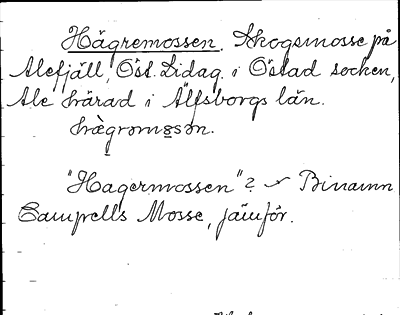 Hägremossen. Skogsmosse på
Alefjäll, Öst. Lidag. i Östad socken,
Ale härad i Älfsborgs län.
hàgrəmọsən.
"Hagermossen"? Binamn
Lamprells Mosse, jämför.